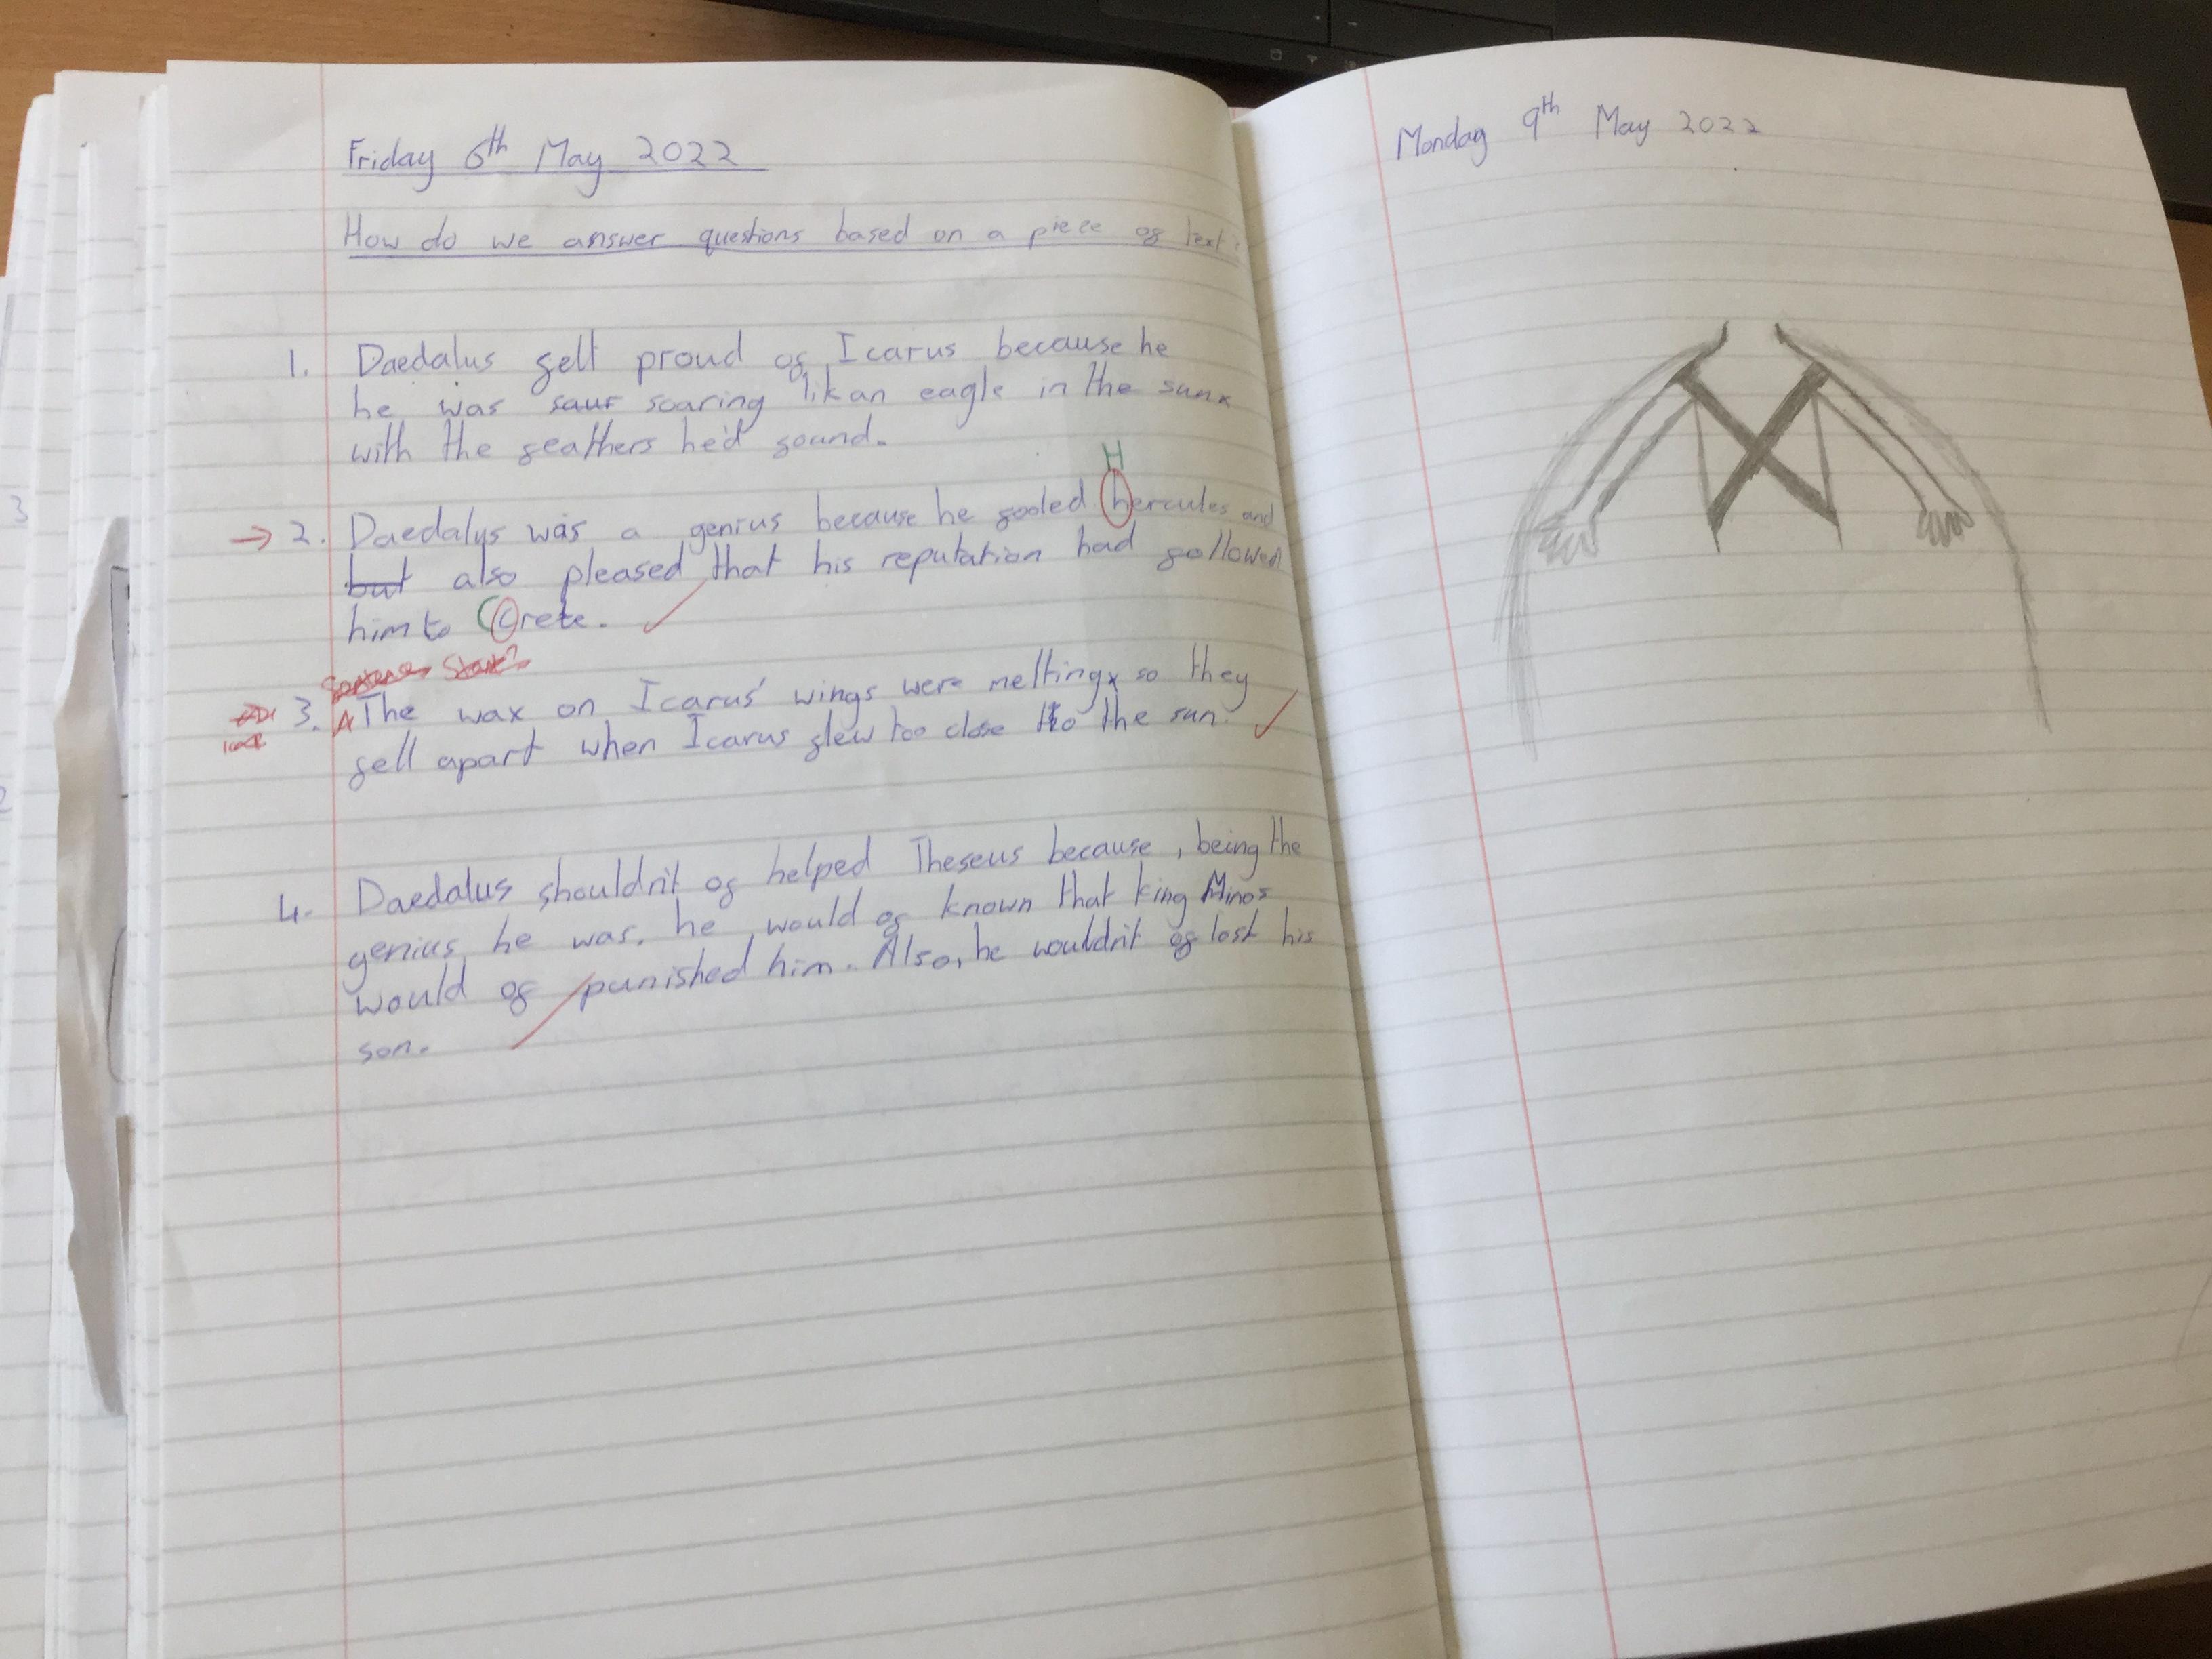 Friday 6th May 2022
How do we answer questions based on a piece of text?
1. Daedalus felt proud of Icarus because he
he was saur soaring lik an eagle in the sun
with the feathers he'd found.
H
→ 2. Daedalus was a genius because he fooled hercules and
but also pleased that his reputation had followed
him to Crete.
Sentence Start?
3. The wax on Icarus' wings were melting so they
fell apart when Icarus flew too close to the sun.
4. Daedalus shouldn't of helped Theseus because, being the
genius he was, he would of known that king Minos
would of punished him. Also, he wouldn't of lost his
son.
Monday 9th May 2022
3
2